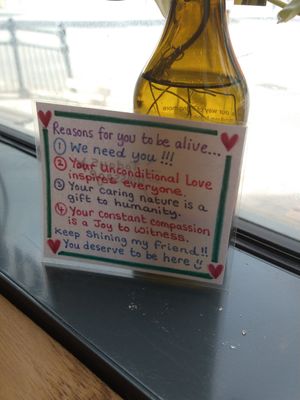 Reasons for you to be alive...
① We need you !!!
② Your Unconditional Love
inspires everyone.
③ Your caring nature is a
gift to humanity.
④ Your constant compassion
is a Joy to witness.
Keep Shining my friend!!
You deserve to be here